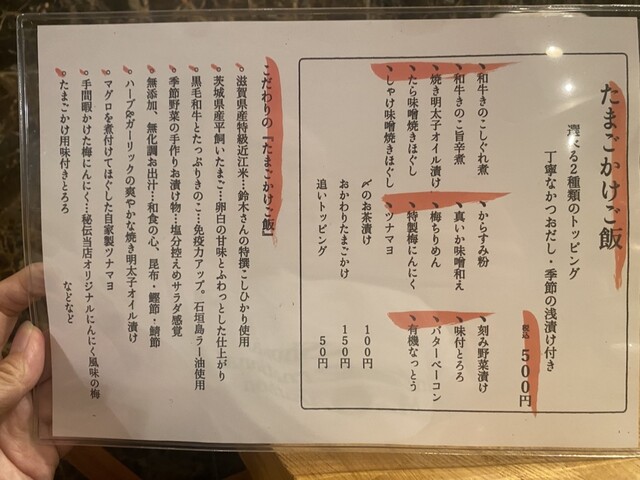 たまごかけご飯
選べる2種類のトッピング
丁寧なかつおだし・季節の浅漬け付き
税込 500円
和牛きのこしぐれ煮
和牛きのこ旨辛煮
焼き明太子オイル漬け
たら味噌焼きほぐし
しゃけ味噌焼きほぐし
からすみ粉
真いか味噌和え
梅ちりめん
特製梅にんにく
ツナマヨ
刻み野菜漬け
味付とろろ
バターベーコン
有機なっとう
〆のお茶漬け 100円
おかわりたまごかけ 150円
追いトッピング 50円
こだわりの『たまごかけご飯』
滋賀県産特級近江米…鈴木さんの特撰こしひかり使用
茨城県産平飼いたまご…卵白の甘味とふわっとした仕上がり
黒毛和牛とたっぷりきのこ…免疫力アップ。石垣島ラー油使用
季節野菜の手作りお漬け物…塩分控えめサラダ感覚
無添加、無化調お出汁…和食の心、昆布・鰹節・鯖節
ハーブ&ガーリックの爽やかな焼き明太子オイル漬け
マグロを煮付けてほぐした自家製ツナマヨ
手間暇かけた梅にんにく…秘伝当店オリジナルにんにく風味の梅
たまごかけ用味付きとろろ
などなど